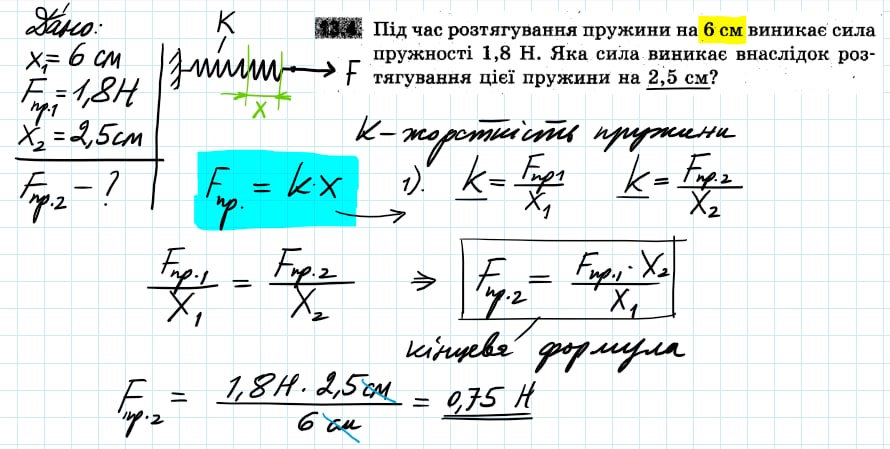 Дано:
x₁ = 6 см
Fпр.1 = 1,8 Н
x₂ = 2,5 см
Fпр.2 – ?
K
F
x
13.4. Під час розтягування пружини на 6 см виникає сила
пружності 1,8 Н. Яка сила виникає внаслідок роз-
тягування цієї пружини на 2,5 см?
K – жорсткість пружини
Fпр. = k·x
1). k = Fпр1/x₁ k = Fпр.2/x₂
Fпр.1/x₁ = Fпр.2/x₂ ⇒ Fпр.2 = Fпр.1 · x₂/x₁
кінцева формула
Fпр.2 = 1,8 Н · 2,5 см/6 см = 0,75 Н